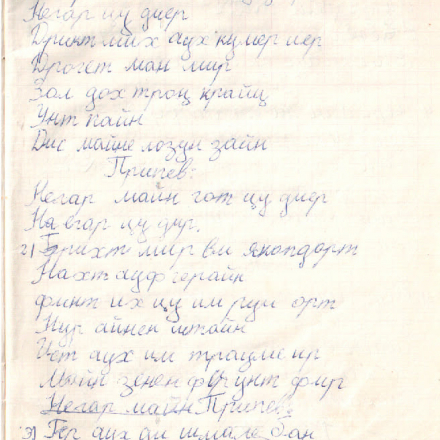 Негар цу диер
Дринкт мих аух кумер иер
Дрогет ман мир
Зол дох троц крайц
Унт пайн
Дис майне лозун зайн
Припев:
Негар майн гот цу диер
На егар цу дир.
2) Брихт мир ви якоп дорт
Нахт ауф герайн
финт их цу им руи орт
Нур айнен штайн
Ист аух им трауме ир
Майн зенен фыр унт фыр
Негар майн Припев:
3) Гер аух ди шмале бан